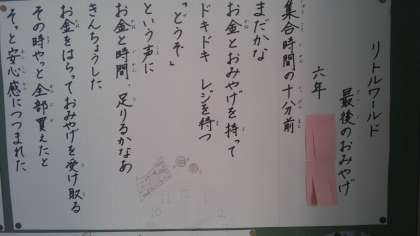 リトルワールド
最後のおみやげ
六年
集合時間の十分前
まだかな
お金とおみやげを持って
ドキドキ レジを待つ
「どうぞ」
という声に
お金と時間、足りるかなあ
きんちょうした
お金をはらっておみやげを受け取る
その時やっと全部買えたと
そっと安心感につつまれた